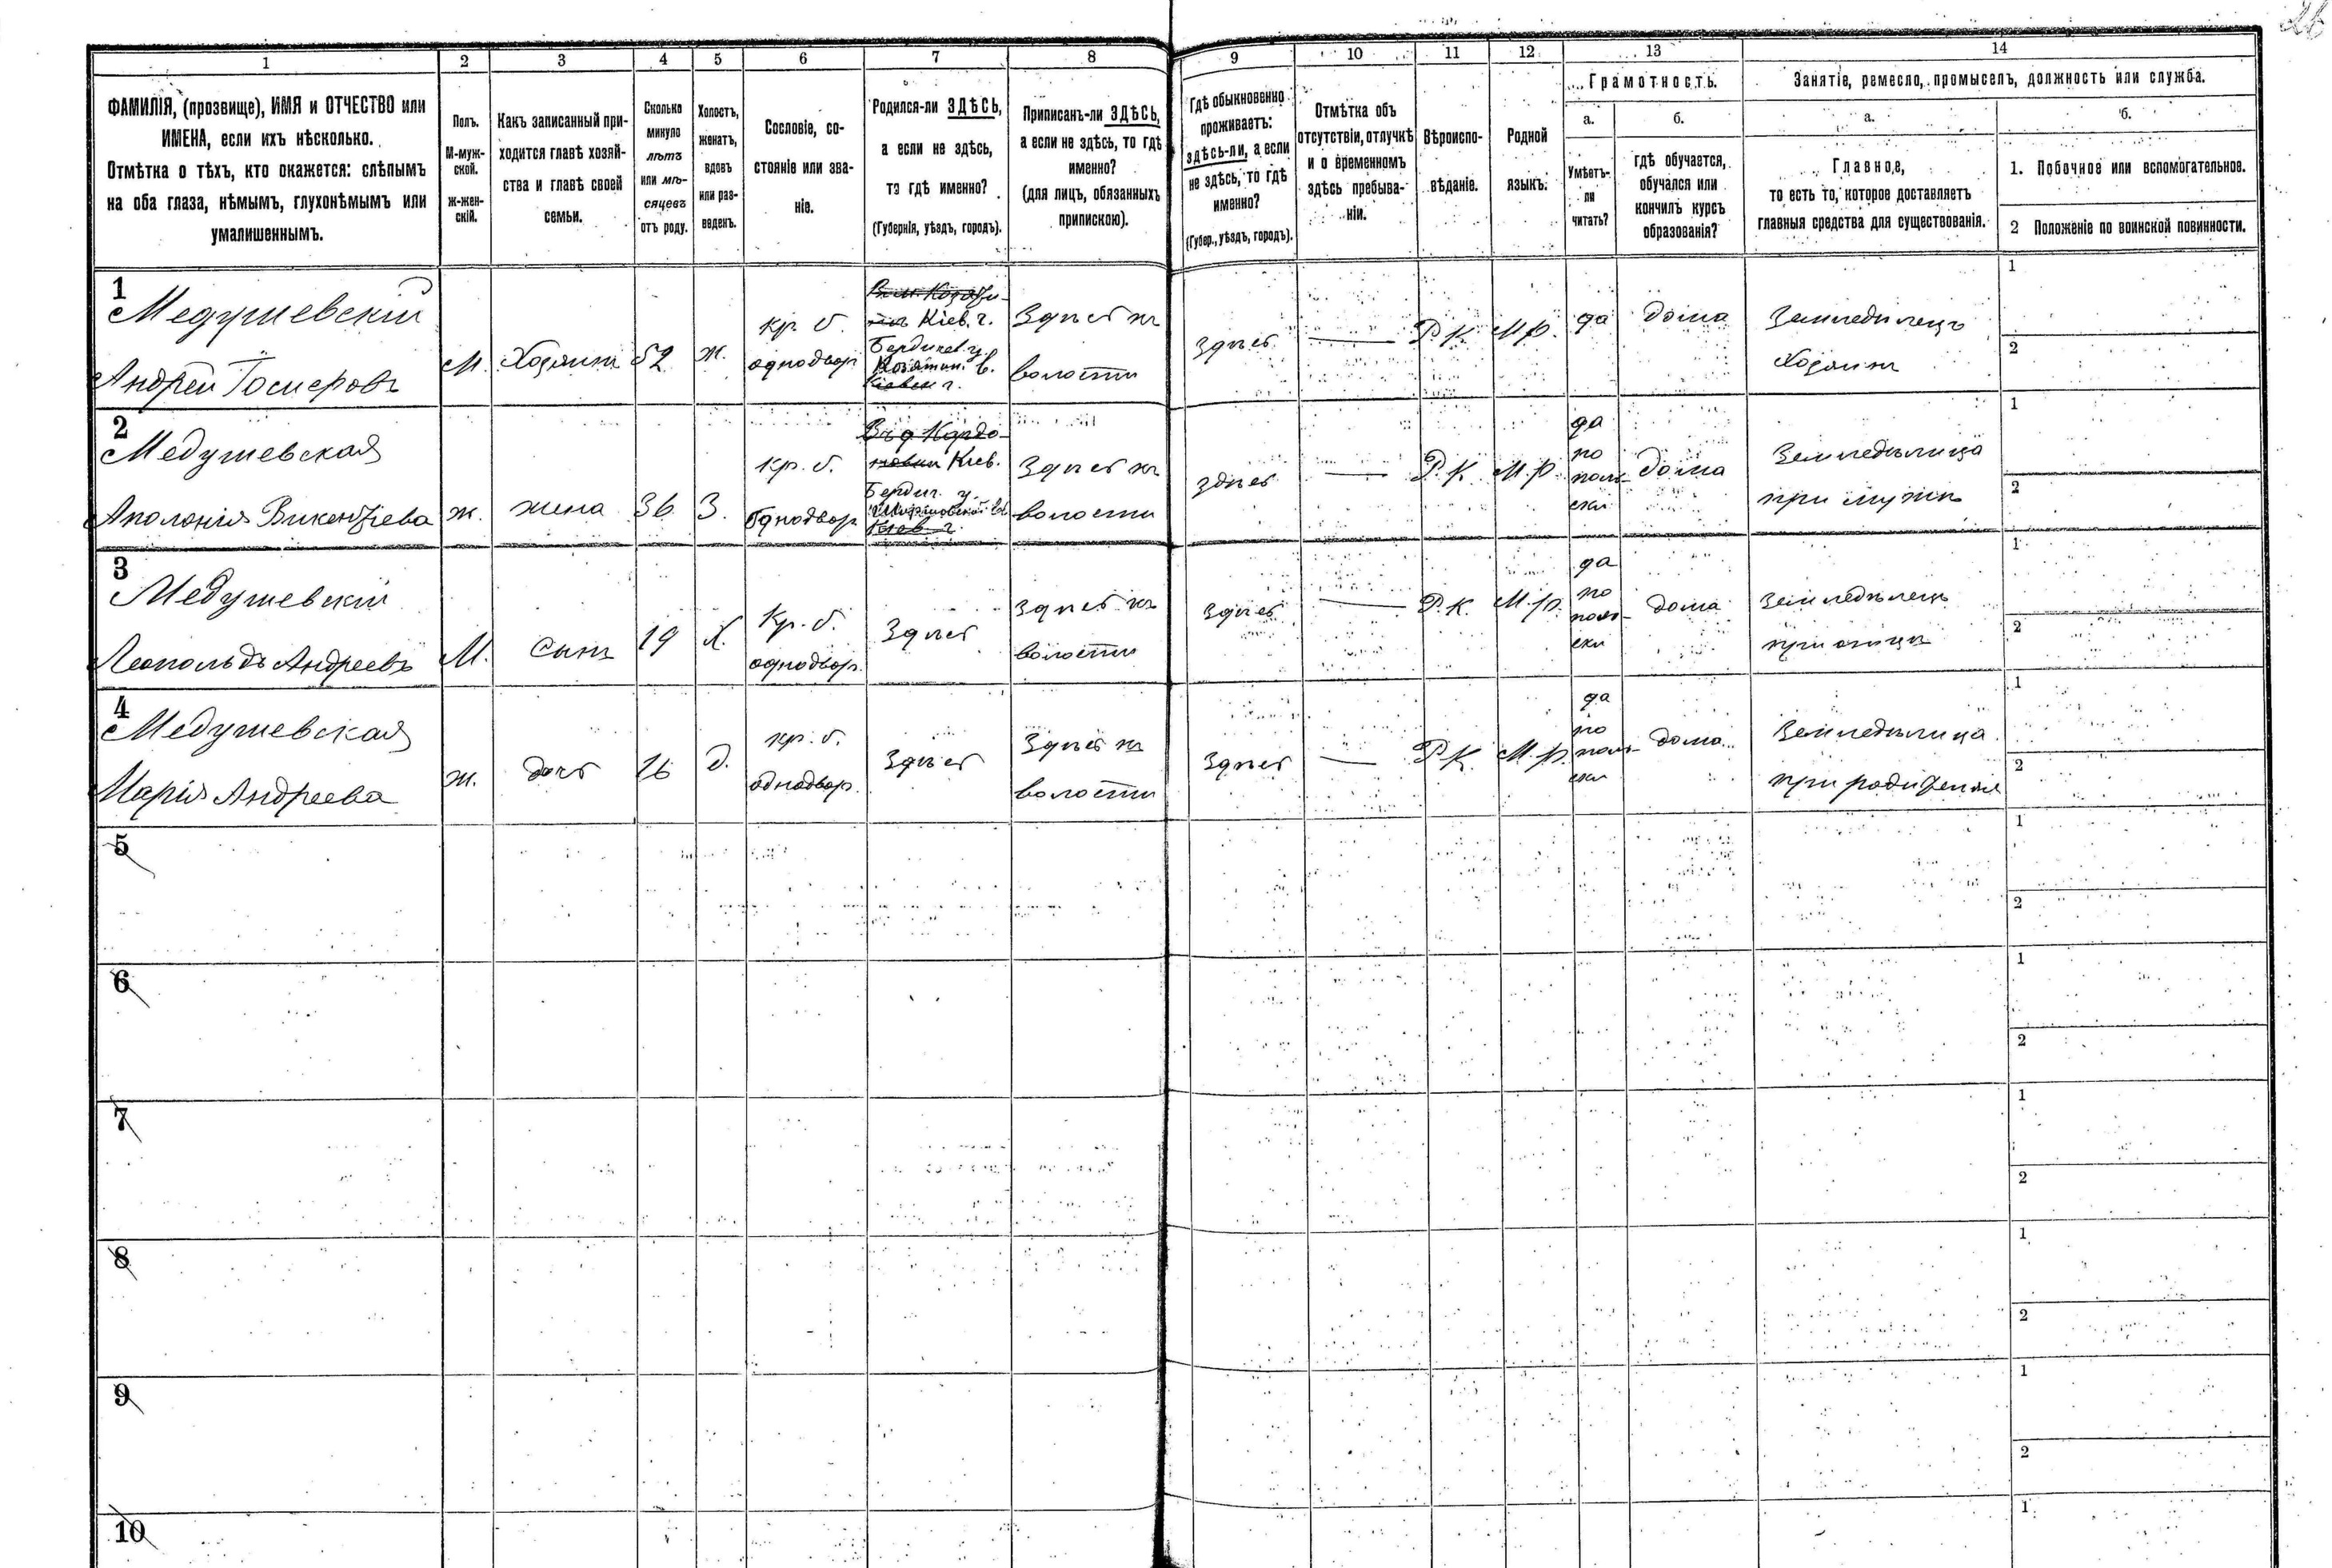 26
1 2 3 4 5 6 7 8 9 10 11 12 13 14
ФАМИЛІЯ, (прозвище), ИМЯ и ОТЧЕСТВО или
ИМЕНА, если ихъ нѣсколько.
Отмѣтка о тѣхъ, кто окажется: слѣпымъ
на оба глаза, нѣмымъ, глухонѣмымъ или
умалишеннымъ.
Полъ.
М-муж-
ской.
ж-жен-
скій.
Какъ записанный при-
ходится главѣ хозяй-
ства и главѣ своей
семьи.
Сколько
минуло
лѣтъ
или мѣ-
сяцевъ
отъ роду.
Холостъ,
женатъ,
вдовъ
или раз-
веденъ.
Сословіе, со-
стояніе или зва-
ніе.
Родился-ли ЗДѢСЬ,
а если не здѣсь,
то гдѣ именно?
(Губернія, уѣздъ, городъ).
Приписанъ-ли ЗДѢСЬ,
а если не здѣсь, то гдѣ
именно?
(для лицъ, обязанныхъ
припискою).
Гдѣ обыкновенно
проживаетъ:
здѣсь-ли, а если
не здѣсь, то гдѣ
именно?
(Губер., уѣздъ, городъ).
Отмѣтка объ
отсутствіи, отлучкѣ
и о временномъ
здѣсь пребыва-
ніи.
Вѣроиспо-
вѣданіе.
Родной
языкъ.
Грамотность.
а.
Умѣетъ-
ли
читать?
б.
гдѣ обучается,
обучался или
кончилъ курсъ
образованія?
Занятіе, ремесло, промыселъ, должность или служба.
а.
Главное,
то есть то, которое доставляетъ
главныя средства для существованія.
б.
1. Побочное или вспомогательное.
2 Положеніе по воинской повинности.
1
Медушевскій
Андрей
М.
Хозяинъ
52
ж.
кр. б.
однодвор
Кіев. г.
Бердичев. у.
Козятин. в.
Здѣсь къ
волости
Здѣсь
Р. К.
М. р.
да
дома
Земледѣлецъ
Хозяинъ
1
2
2
Медушевская
Аполонія Викентіева
ж.
жена
36
З.
кр. б.
однодвор
Кіев.
Бердич. у.
Здѣсь къ
волости
здѣсь
Р. К.
М. р.
да
по
поль-
ски
дома
Земледѣлица
при мужѣ
1
2
3
Медушевскій
Леопольдъ Андреевъ
М.
Сынъ
19
Х.
Кр. б.
однодвор.
Здѣсь
Здѣсь къ
волости
Здѣсь
Р. К.
М. р.
да
по
поль-
ски
дома
Земледѣлецъ
при отцѣ
1
2
4
Медушевская
Марія Андреева
ж.
дочь
16
д.
кр. б.
однодвор.
Здѣсь
Здѣсь къ
волости
Здѣсь
Р. К.
М. р.
да
по
поль-
ски
дома
Земледѣлица
при
1
2
5
1
2
6
1
2
7
1
2
8
1
2
9
1
2
10
1